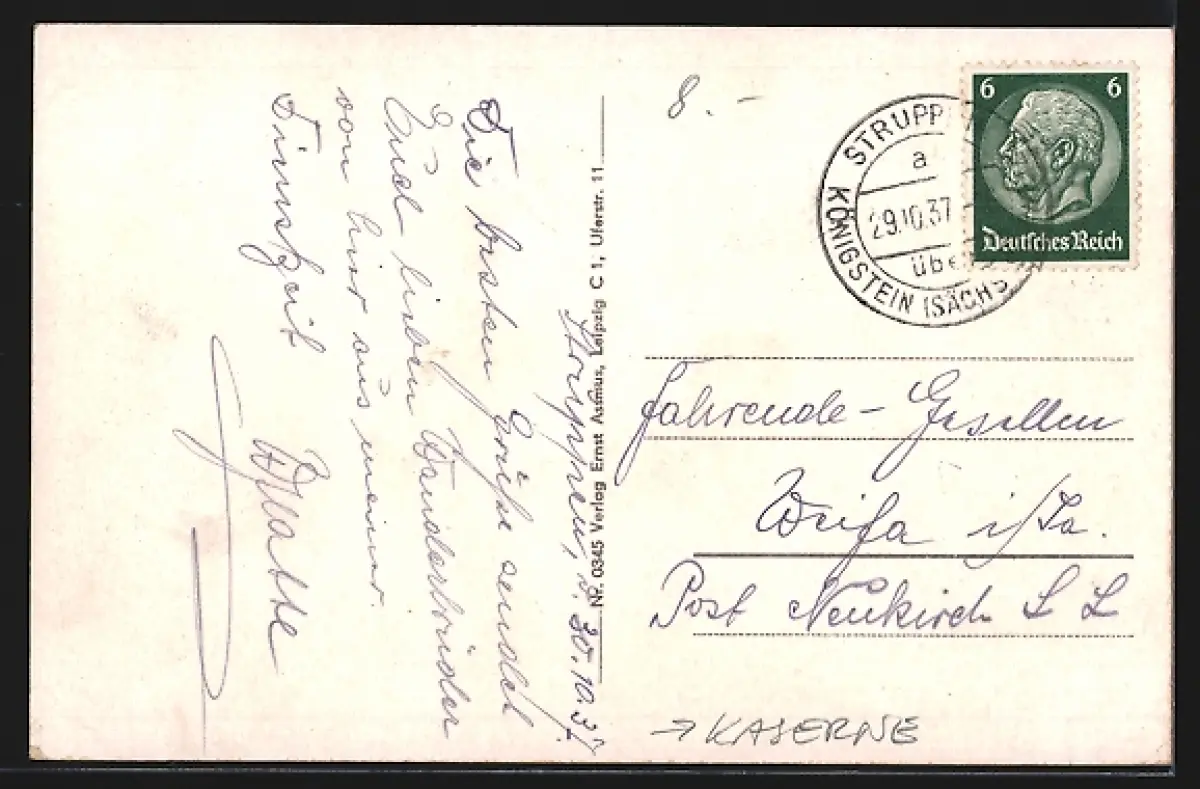 Struppen, d. 30.10.37
Die besten Grüße sendet
Euch lieben Wanderbrüder
von hier aus meiner
Dienstzeit
Nr. 0345 Verlag Ernst Asmus, Leipzig C 1, Uferstr. 11
8.-
6 6
Deutsches Reich
STRUPP
a
29.10.37
über
KÖNIGSTEIN (SÄCHS
Fahrende-Gesellen
Weifa i/Sa.
Post Neukirch L L
→ KASERNE